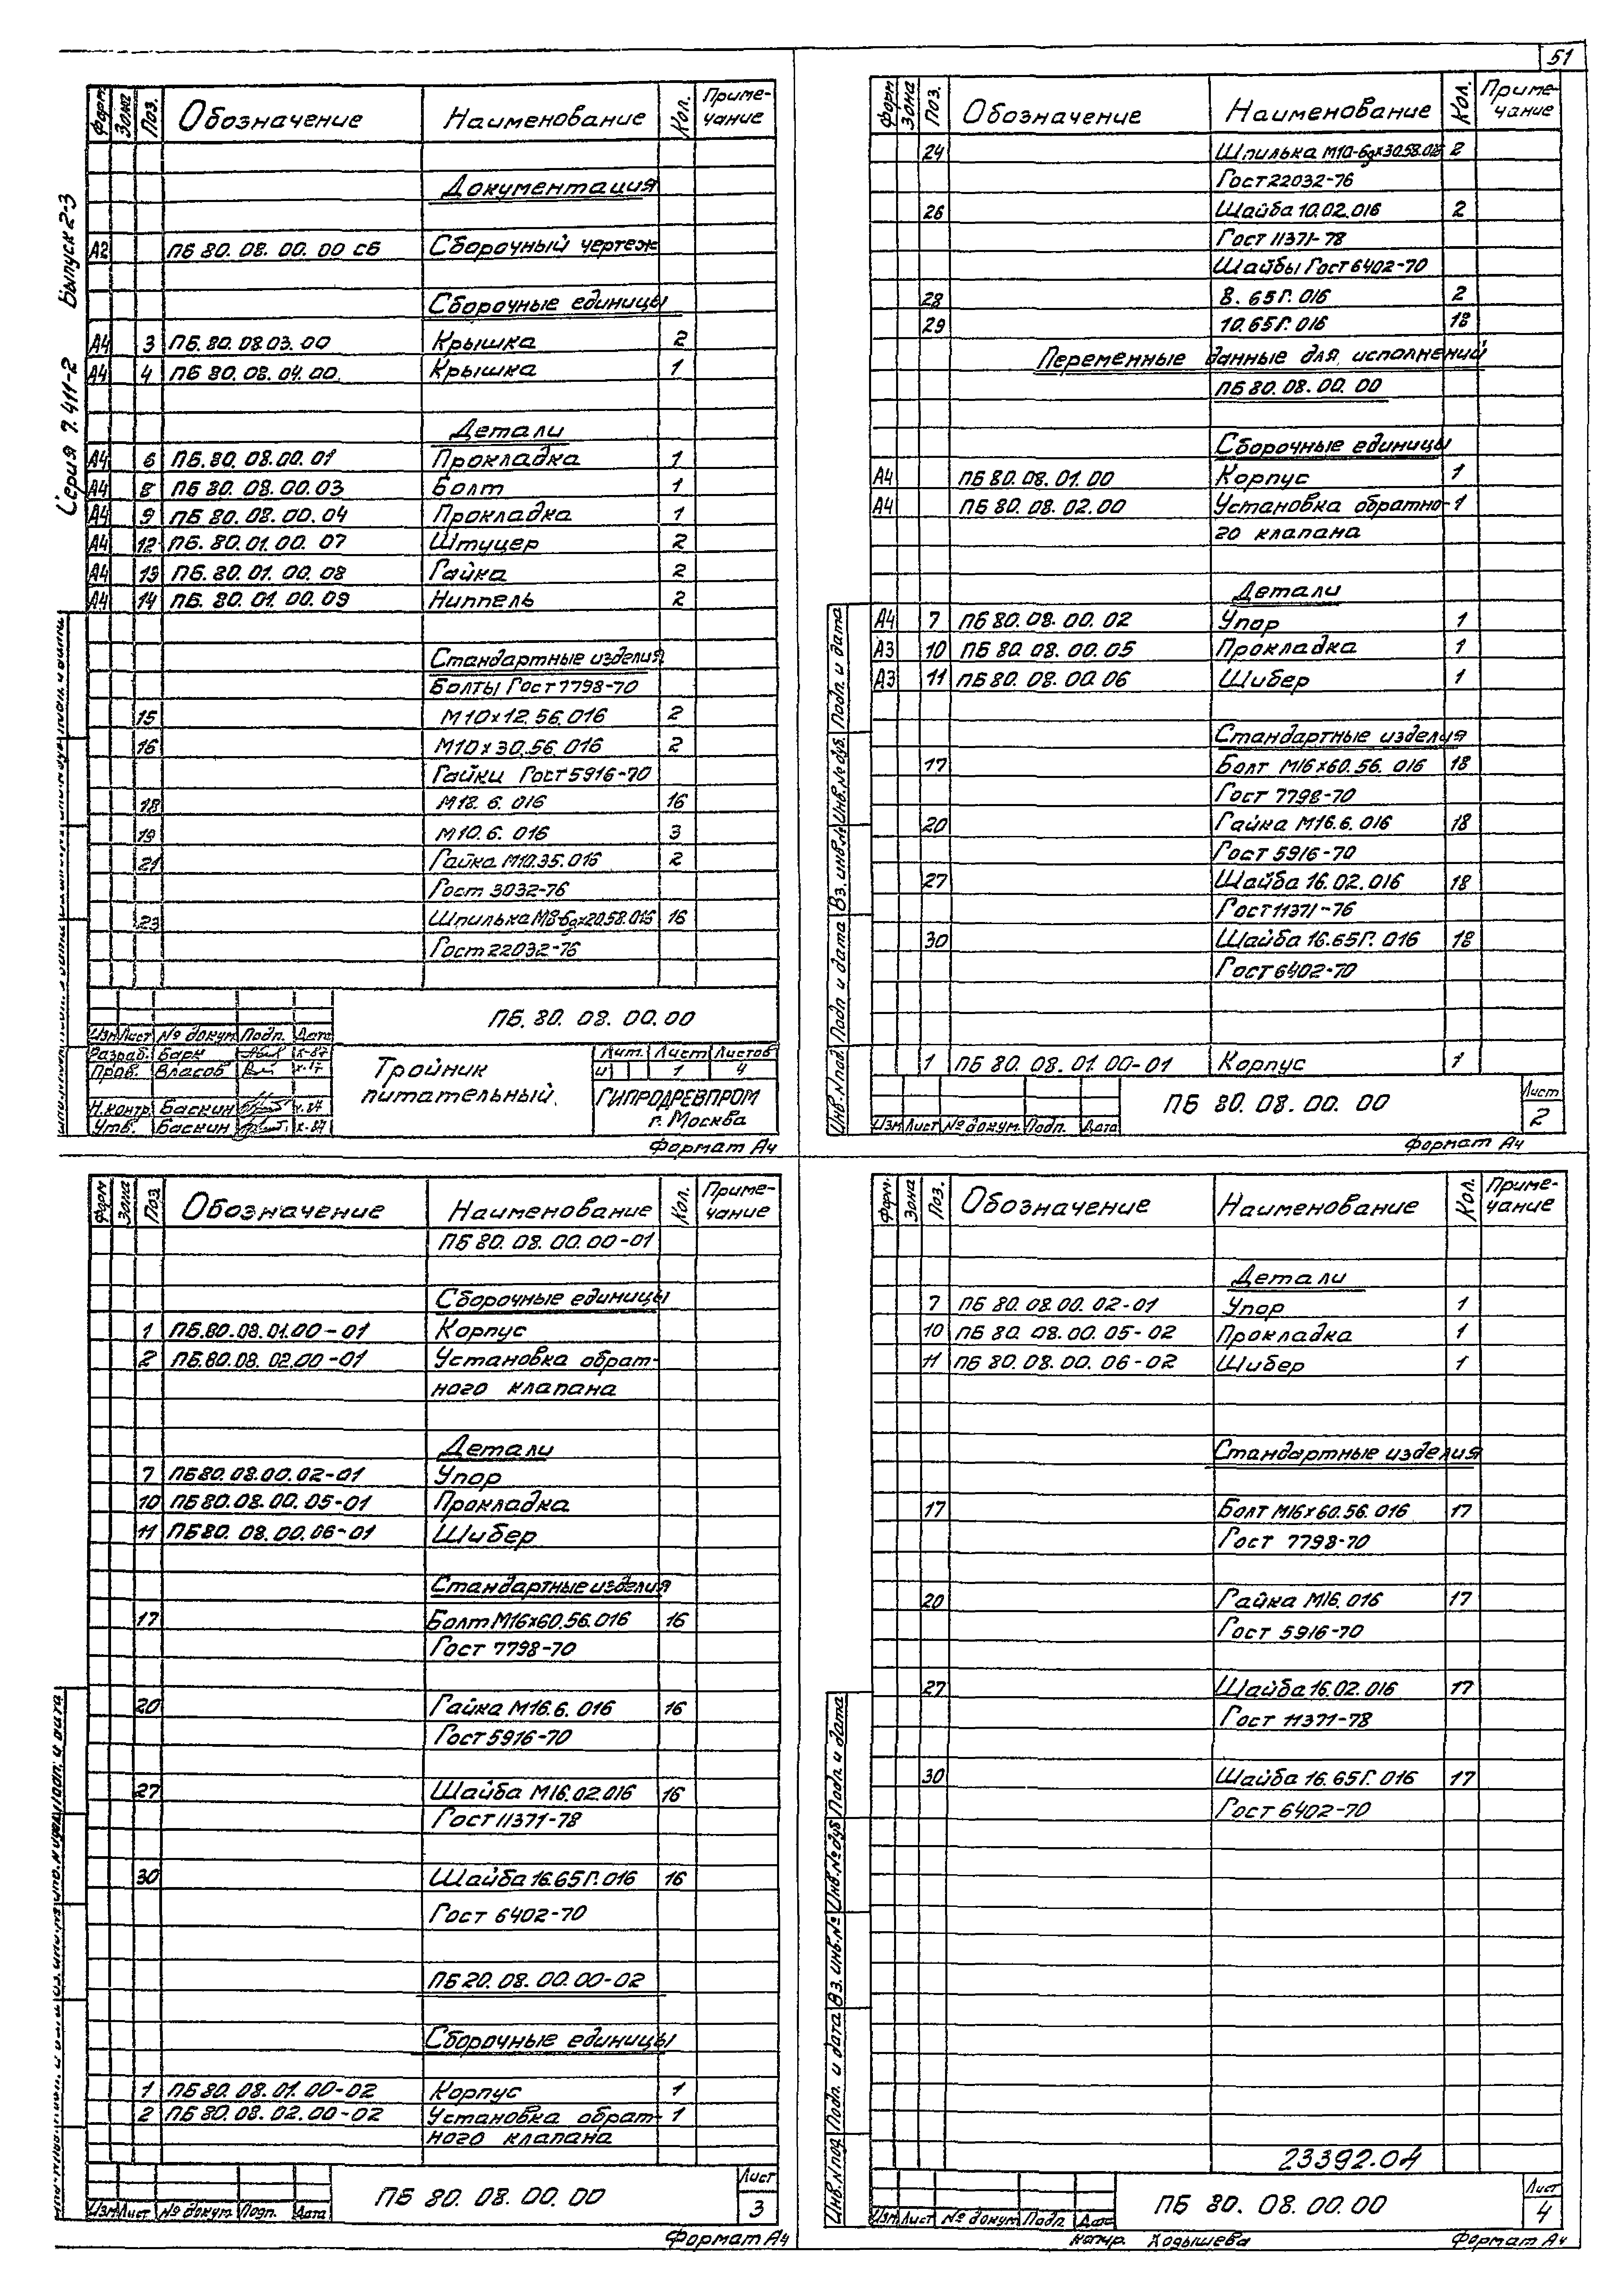 51
Серия 7.411-2 Выпуск 2-3
Форм. Зона Поз. Обозначение Наименование Кол. Приме-
чание
Документация
А2 ПБ 80.08.00.00 сб Сборочный чертеж
Сборочные единицы
А4 3 ПБ.80.08.03.00 Крышка 2
А4 4 ПБ 80.08.04.00. Крышка 1
Детали
А4 6 ПБ.80.08.00.01 Прокладка 1
А4 8 ПБ 80.08.00.03 Болт 1
А4 9 ПБ 80.08.00.04 Прокладка 1
А4 12 ПБ.80.01.00.07 Штуцер 2
А4 13 ПБ.80.01.00.08 Гайка 2
А4 14 ПБ.80.01.00.09 Ниппель 2
Стандартные изделия
Болты Гост 7798-70
15 М10х12.56.016 2
16 М10х30.56.016 2
Гайки Гост 5916-70
18 М12.6.016 16
19 М10.6.016 3
21 Гайка М10.35.016 2
Гост 3032-76
23 Шпилька М8-6gх20.58.016 16
Гост 22032-76
ПБ.80.08.00.00
Изм Лист № докум. Подп. Дата
Разраб. Барк X-87
Пров. Власов X.87
Н.контр. Баскин X.87
Утв. Баскин X-87
Тройник
питательный.
Лит. Лист Листов
И 1 4
ГИПРОДРЕВПРОМ
г. Москва
Формат А4
Форм Зона Поз. Обозначение Наименование Кол. Приме-
чание
24 Шпилька М10-6gх30.58.016 2
Гост 22032-76
26 Шайба 10.02.016 2
Гост 11371-78
Шайбы Гост 6402-70
28 8.65Г.016 2
29 10.65Г.016 18
Переменные данные для исполнений
ПБ 80.08.00.00
Сборочные единицы
А4 ПБ 80.08.01.00 Корпус 1
А4 ПБ 80.08.02.00 Установка обратно- 1
го клапана
Детали
А4 7 ПБ 80.08.00.02 Упор 1
А3 10 ПБ 80.08.00.05 Прокладка 1
А3 11 ПБ 80.08.00.06 Шибер 1
Стандартные изделия
17 Болт М16х60.56.016 18
Гост 7798-70
20 Гайка М16.6.016 18
Гост 5916-70
27 Шайба 16.02.016 18
Гост 11371-76
30 Шайба 16.65Г.016 18
Гост 6402-70
1 ПБ 80.08.01.00-01 Корпус 1
Инв.№ под. Подп и дата Вз. инв.№ Инв.№ дуб. Подп. и дата
Изм Лист № докум. Подп. Дата
ПБ 80.08.00.00
Лист
2
Формат А4
Форм Зона Поз. Обозначение Наименование Кол. Приме-
чание
ПБ 80.08.00.00-01
Сборочные единицы
1 ПБ.80.08.01.00-01 Корпус
2 ПБ.80.08.02.00-01 Установка обрат-
ного клапана
Детали
7 ПБ80.08.00.02-01 Упор
10 ПБ80.08.00.05-01 Прокладка
11 ПБ80.08.00.06-01 Шибер
Стандартные изделия
17 Болт М16х60.56.016 16
Гост 7798-70
20 Гайка М16.6.016 16
Гост 5916-70
27 Шайба М16.02.016 16
Гост 11371-78
30 Шайба 16.65Г.016 16
Гост 6402-70
ПБ 20.08.00.00-02
Сборочные единицы
1 ПБ 80.08.01.00-02 Корпус 1
2 ПБ 80.08.02.00-02 Установка обрат- 1
ного клапана
Изм Лист № докум. Подп. Дата
ПБ 80.08.00.00
Лист
3
Формат А4
Форм. Зона Поз. Обозначение Наименование Кол. Приме-
чание
Детали
7 ПБ 80.08.00.02-01 Упор 1
10 ПБ 80.08.00.05-02 Прокладка 1
11 ПБ 80.08.00.06-02 Шибер 1
Стандартные изделия
17 Болт М16х60.56.016 17
Гост 7798-70
20 Гайка М16.016 17
Гост 5916-70
27 Шайба 16.02.016 17
Гост 11371-78
30 Шайба 16.65Г.016 17
Гост 6402-70
23392.04
Инв.№ под. Подп. и дата Вз. инв.№ Инв.№ дуб Подп. и дата
Изм Лист № докум Подп Дата
ПБ 80.08.00.00
Лист
4
копир. Ходышева Формат А4